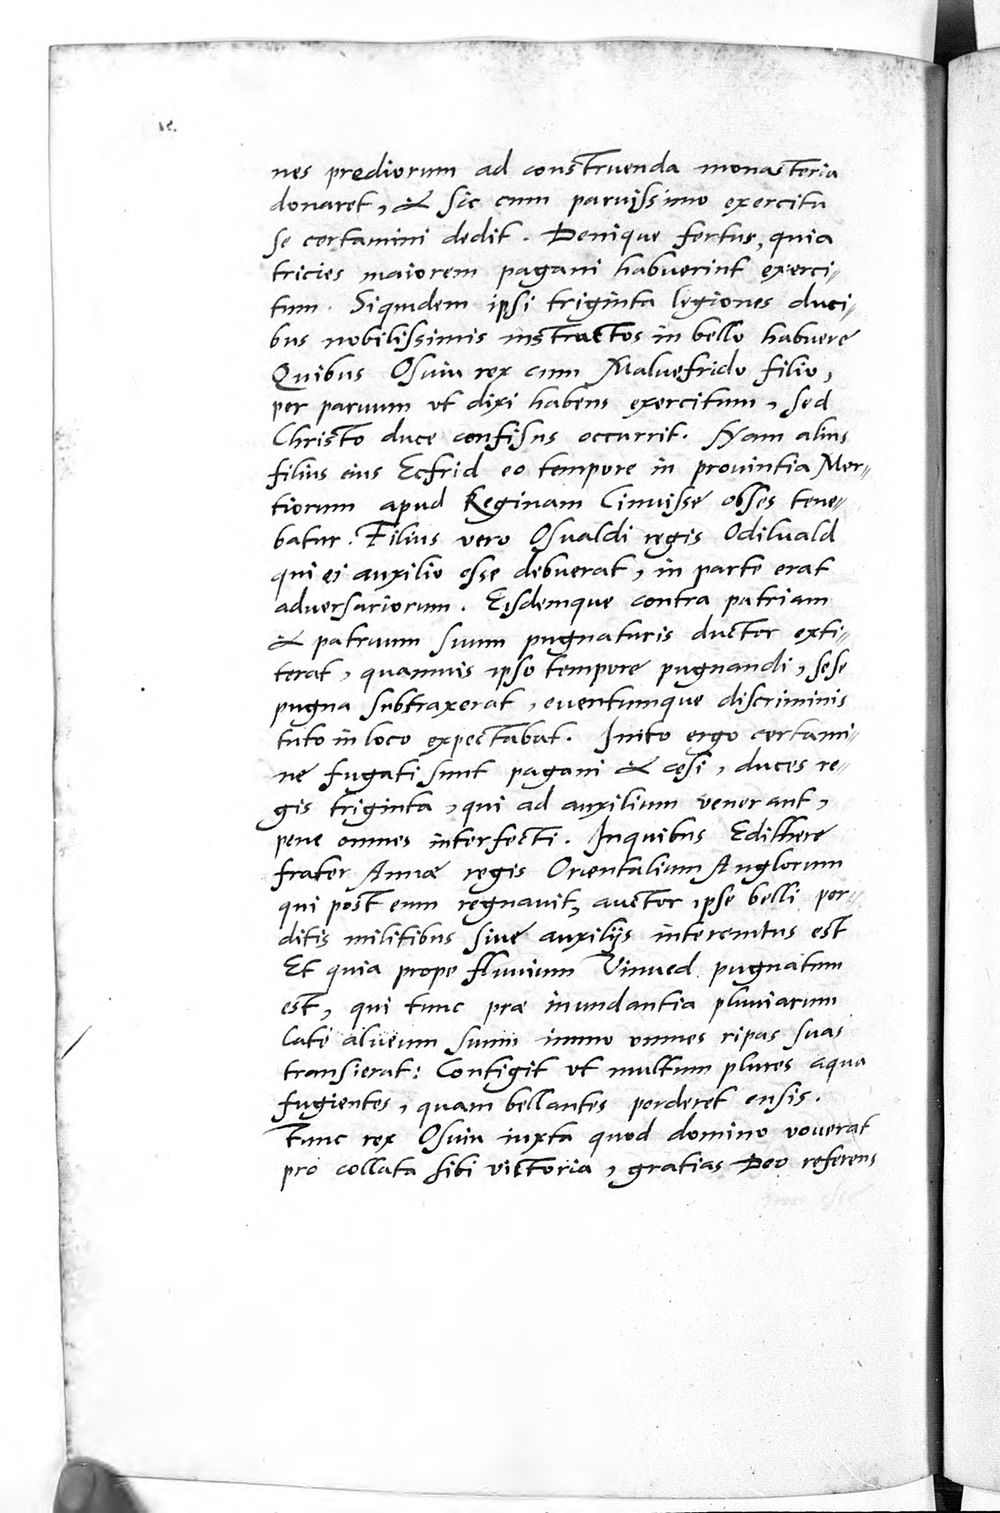 nes prediorum ad construenda monasteria
donaret, & sic cum paruissimo exercitu
se certamini dedit. Denique fertur, quia
tricies maiorem pagani habuerint exerci-
tum. Siquidem ipsi triginta legiones duci-
bus nobilissimis instructos in bello habuere
Quibus Osuiu rex cum Maluefrido filio,
per paruum vt dixi habens exercitum, sed
Christo duce confisus occurrit. Nam alius
filius eius Ecfrid eo tempore in prouintia Mer-
tiorum apud Reginam Cinuisse obses tene-
batur. Filius vero Osualdi regis Odiluald
qui ei auxilio esse debuerat, in parte erat
aduersariorum. Eisdemque contra patriam
& patruum suum pugnaturis ductor exti-
terat, quamuis ipso tempore pugnandi, sese
pugna subtraxerat, euentumque discriminis
tuto in loco expectabat. Inito ergo certami-
ne fugati sunt pagani & cęsi, duces re-
gis triginta, qui ad auxilium venerant,
pene omnes interfecti. In quibus Edilhere
frater Annæ regis Orientalium Anglorum
qui post eum regnauit, auctor ipse belli per-
ditis militibus siue auxilijs interemtus est
Et quia prope fluuium Vinued pugnatum
est, qui tunc præ inundantia pluuiarum
late alueum suum immo omnes ripas suas
transierat: Contigit vt multum plures aqua
fugientes, quam bellantes perderet ensis.
Tunc rex Osuiu iuxta quod domino vouerat
pro collata sibi victoria, gratias Deo referens